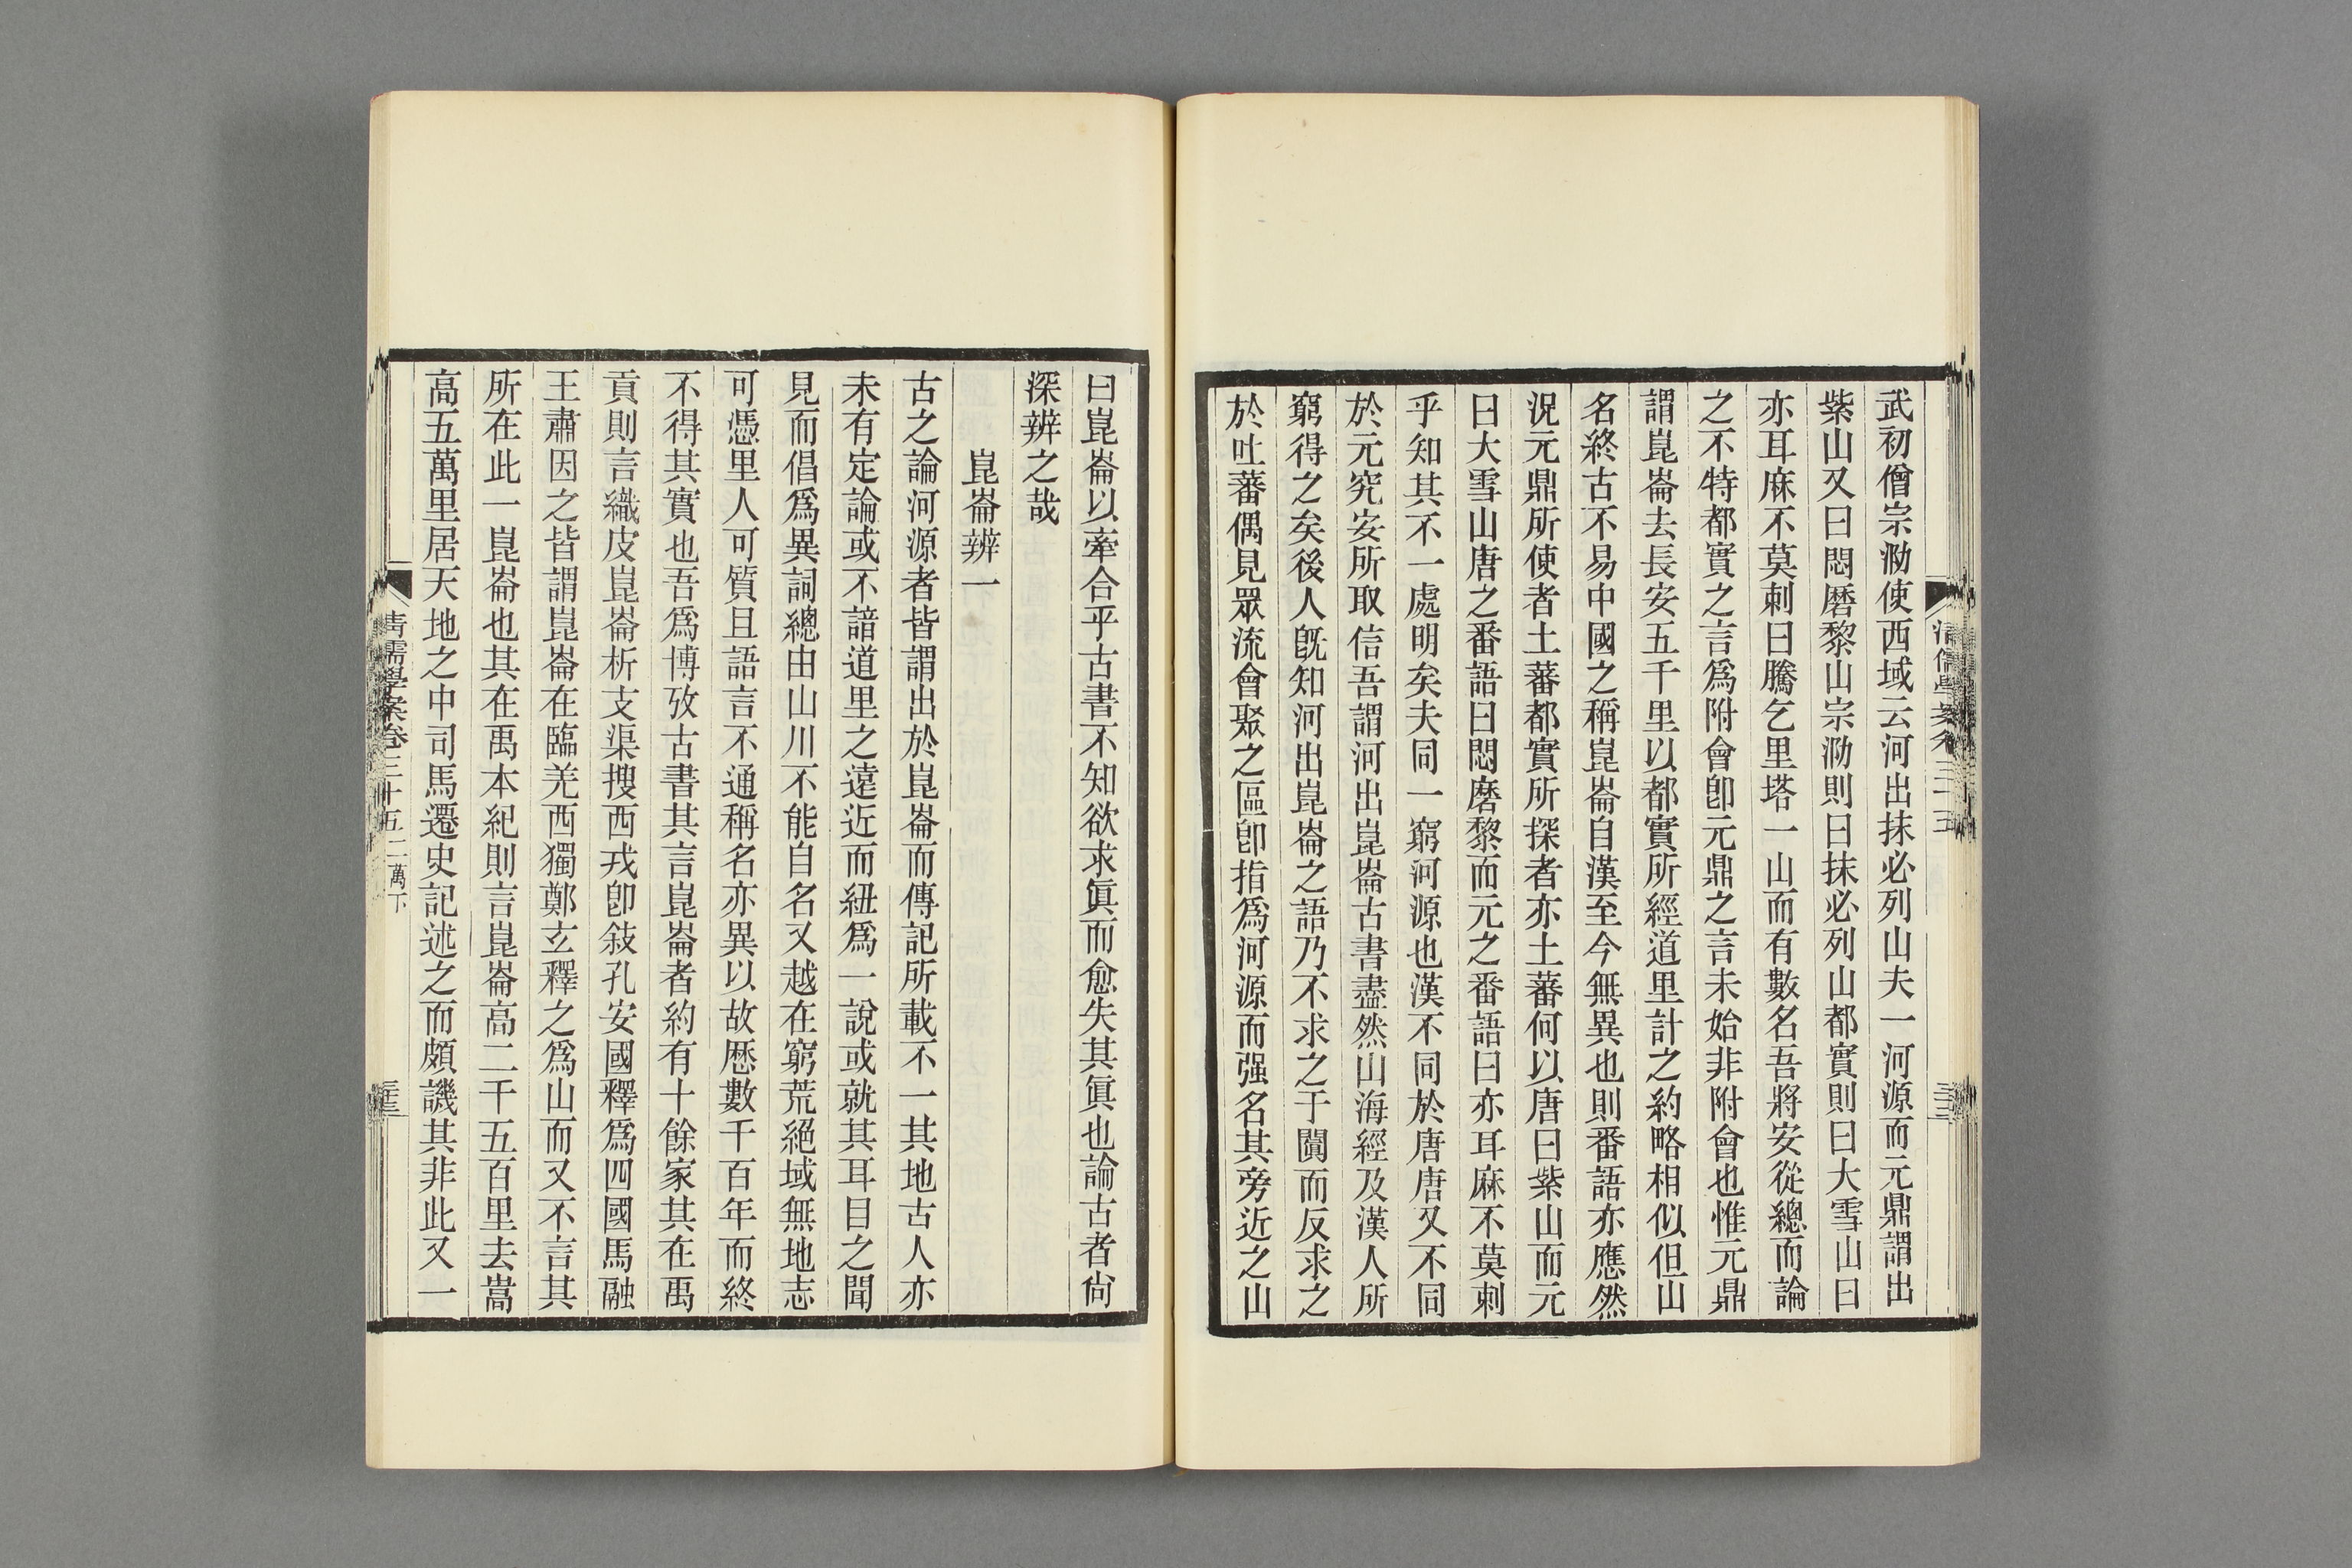 武初僧宗泐使西域云河出抹必列山夫一河源而元鼎謂出
紫山又曰悶磨黎山宗泐則曰抹必列山都實則曰大雪山曰
亦耳麻不莫刺曰騰乞里塔一山而有數名吾將安從總而論
之不特都實之言爲附會卽元鼎之言未始非附會也惟元鼎
謂崑崙去長安五千里以都實所經道里計之約略相似但山
名終古不易中國之稱崑崙自漢至今無異也則番語亦應然
況元鼎所使者土蕃都實所探者亦土蕃何以唐曰紫山而元
曰大雪山唐之番語曰悶磨黎而元之番語曰亦耳麻不莫刺
乎知其不一處明矣夫同一窮河源也漢不同於唐唐又不同
於元究安所取信吾謂河出崑崙古書盡然山海經及漢人所
窮得之矣後人旣知河出崑崙之語乃不求之于闐而反求之
於吐蕃偶見眾流會聚之區卽指爲河源而强名其旁近之山
曰崑崙以牽合乎古書不知欲求眞而愈失其眞也論古者尙
深辨之哉
崑崙辨一
古之論河源者皆謂出於崑崙而傳記所載不一其地古人亦
未有定論或不諳道里之遠近而紐爲一說或就其耳目之聞
見而倡爲異詞總由山川不能自名又越在窮荒絕域無地志
可憑里人可質且語言不通稱名亦異以故歷數千百年而終
不得其實也吾爲博攷古書其言崑崙者約有十餘家其在禹
貢則言織皮崑崙析支渠搜西戎卽敍孔安國釋爲四國馬融
王肅因之皆謂崑崙在臨羌西獨鄭玄釋之爲山而又不言其
所在此一崑崙也其在禹本紀則言崑崙高二千五百里去嵩
高五萬里居天地之中司馬遷史記述之而頗譏其非此又一
清儒學案卷三十五二萬下